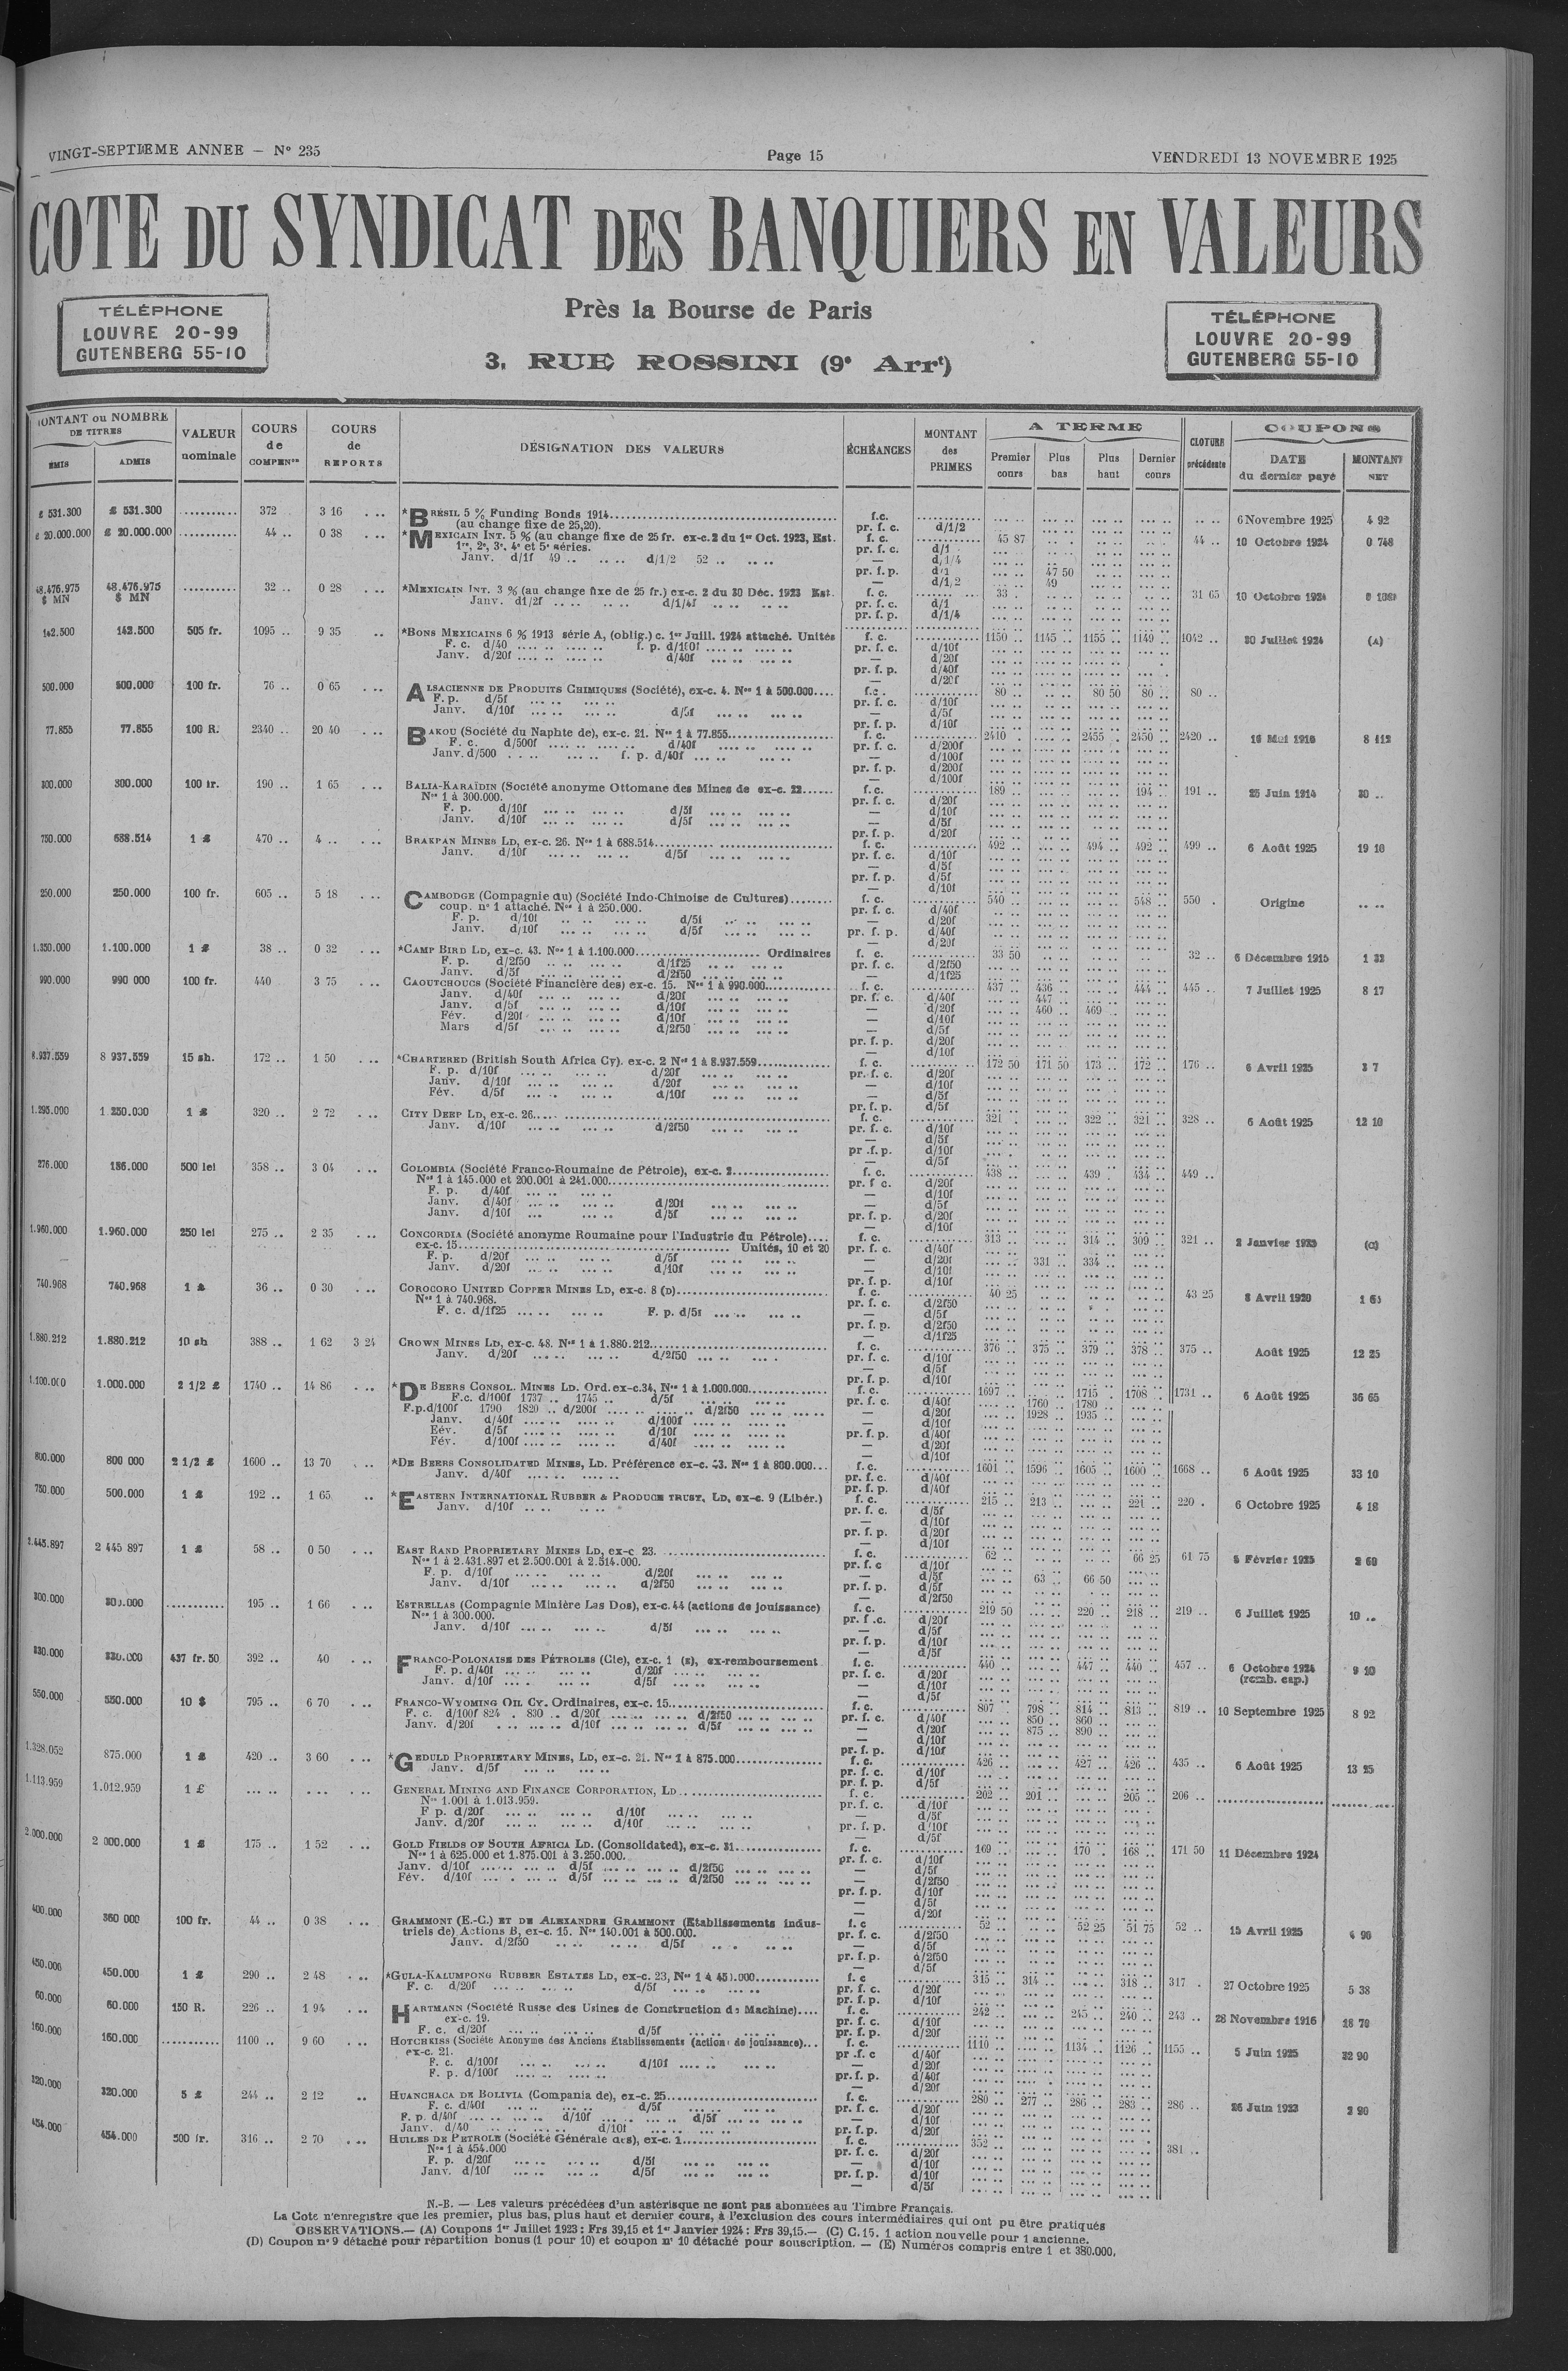 VINGT-SEPTIEME ANNEE — N° 235
Page 15
VENDREDI 13 NOVEMBRE 1925
COTE DU SYNDICAT DES BANQUIERS EN VALEURS
TÉLÉPHONE
LOUVRE 20-99
GUTENBERG 55-10
Près la Bourse de Paris
3, RUE ROSSINI (9e Arrt)
TÉLÉPHONE
LOUVRE 20-99
GUTENBERG 55-10
MONTANT ou NOMBRE DE TITRES
ÉMIS ADMIS
VALEUR nominale
COURS de COMPENon
COURS de REPORTS
DÉSIGNATION DES VALEURS
ÉCHÉANCES
MONTANT des PRIMES
A TERME
Premier cours Plus bas Plus haut Dernier cours
CLOTURE précédente
COUPONS
DATE du dernier payé MONTANT NET
£ 531.300 £ 531.300 ........... 372 3 16 *BRÉSIL 5 % Funding Bonds 1914 f.c. 6 Novembre 1925 4 92
(au change fixe de 25,20). pr. f. c. d/1/2
£ 20.000.000 £ 20.000.000 ........... 44 .. 0 38 *MEXICAIN INT. 5 % (au change fixe de 25 fr. ex-c. 2 du 1er Oct. 1923, Est. f. c. 45 87 44 .. 10 Octobre 1924 0 748
1re, 2e, 3e, 4e et 5e séries. pr. f. c. d/1
Janv. d/1f 49 .. d/1/2 52 .. — d/1/4
pr. f. p. d/1 47 50
— d/1/2 49
48.476.975 $ MN 48.476.975 $ MN .......... 32 .. 0 28 *MEXICAIN INT. 3 % (au change fixe de 25 fr.) ex-c. 2 du 30 Déc. 1923 Est. f. c. 33 . 31 65 10 Octobre 1924
Janv. d1/2f d/1/4f pr. f. c. d/1
pr. f. p. d/1/4
142.500 142.500 505 fr. 1095 .. 9 35 *BONS MEXICAINS 6 % 1913 série A, (oblig.) c. 1er Juill. 1924 attaché. Unités f. c. 1150 .. 1145 .. 1155 .. 1149 .. 1042 .. 30 Juillet 1924 (A)
F. c. d/40 f. p. d/100f pr. f. c. d/10f
Janv. d/20f d/40f — d/20f
pr. f. p. d/40f
— d/20f
500.000 500.000 100 fr. 76 .. 0 65 ALSACIENNE DE PRODUITS CHIMIQUES (Société), ex-c. 4. Nos 1 à 500.000.... f.c. 80 .. 80 50 80 .. 80 ..
F. p. d/5f pr. f. c. d/10f
Janv. d/10f d/5f — d/5f
pr. f. p. d/10f
77.855 77.855 100 R. 2340 .. 20 40 BAKOU (Société du Naphte de), ex-c. 21. Nos 1 à 77.855 f. c. 2410 .. 2455 .. 2450 .. 2420 .. 16 Mai 1916 8 112
F. c. d/500f d/40f pr. f. c. d/200f
Janv. d/500 f. p. d/40f — d/100f
pr. f. p. d/200f
— d/100f
300.000 300.000 100 fr. 190 .. 1 65 BALIA-KARAÏDIN (Société anonyme Ottomane des Mines de ex-c. 22...... f.c. 189 .. 194 .. 191 .. 25 Juin 1914 30 ..
Nos 1 à 300.000. pr. f. c. d/20f
F. p. d/10f d/5f — d/10f
Janv. d/10f d/5f — d/5f
pr. f. p. d/20f
750.000 688.514 1 £ 470 .. 4 .. BRAKPAN MINES LD, ex-c. 26. Nos 1 à 688.514 f. c. 492 .. 494 .. 492 .. 499 .. 6 Août 1925 19 10
Janv. d/10f d/5f pr. f. c. d/10f
— d/5f
pr. f. p. d/5f
— d/10f
250.000 250.000 100 fr. 605 .. 5 18 CAMBODGE (Compagnie du) (Société Indo-Chinoise de Cultures)........ f. c. 540 .. 548 .. 550 . Origine
coup. n° 1 attaché. Nos 1 à 250.000. pr. f. c. d/40f
F. p. d/10f d/5f — d/20f
Janv. d/10f d/5f pr. f. p. d/40f
— d/20f
1.350.000 1.100.000 1 £ 38 .. 0 32 *CAMP BIRD LD, ex-c. 43. Nos 1 à 1.100.000 Ordinaires f. c. 33 50 32 .. 6 Décembre 1915 1 33
F. p. d/2f50 d/1f25 pr. f. c. d/2f50
Janv. d/5f d/2f50 — d/1f25
990.000 990 000 100 fr. 440 3 75 CAOUTCHOUCS (Société Financière des) ex-c. 15. Nos 1 à 990.000 f. c. 437 .. 436 .. 444 .. 445 .. 7 Juillet 1925 8 17
Janv. d/40f d/20f pr. f. c. d/40f 447 ..
Janv. d/5f d/10f — d/20f 460 .. 469 ..
Fév. d/20f d/10f — d/10f
Mars d/5f d/2f50 — d/5f
pr. f. p. d/20f
— d/10f
8.937.559 8 937.559 15 sh. 172 .. 1 50 *CHARTERED (British South Africa Cy). ex-c. 2 Nos 1 à 8.937.559 f. c. 172 50 171 50 173 .. 172 .. 176 .. 6 Avril 1925 3 7
F. p. d/10f d/20f pr. f. c. d/20f
Janv. d/10f d/20f — d/10f
Fév. d/5f d/10f — d/5f
pr. f. p. d/5f
1.295.000 1 250.000 1 £ 320 .. 2 72 CITY DEEP LD, ex-c. 26 f. c. 321 . 322 .. 321 .. 328 .. 6 Août 1925 12 10
Janv. d/10f d/2f50 pr. f. c. d/10f
— d/5f
pr .f. p. d/10f
— d/5f
276.000 186.000 500 lei 358 .. 3 04 COLOMBIA (Société Franco-Roumaine de Pétrole), ex-c. 2 f. c. 438 .. 439 . 434 .. 449 ..
Nos 1 à 145.000 et 200.001 à 241.000 pr. f. c. d/20f
F. p. d/40f — d/10f
Janv. d/40f d/20f — d/5f
Janv. d/10f d/5f pr. f. p. d/20f
— d/10f
1.960.000 1.960.000 250 lei 275 .. 2 35 CONCORDIA (Société anonyme Roumaine pour l'Industrie du Pétrole).... f. c. 313 .. 314 .. 309 .. 321 .. 2 Janvier (C)
ex-c. 15 Unités, 10 et 20 pr. f. c. d/40f
F. p. d/20f d/5f — d/20f 331 .. 334 ..
Janv. d/20f d/10f — d/10f
pr. f. p. d/10f
740.968 740.968 1 £ 36 .. 0 30 COROCORO UNITED COPPER MINES LD, ex-c. 8 (D) f. c. 40 25 43 25 8 Avril 1920
Nos 1 à 740.968. pr. f. c. d/2f50
F. c. d/1f25 F. p. d/5f — d/5f
pr. f. p. d/2f50
— d/1f25
1.880.212 1.880.212 10 sh 388 .. 1 62 3 24 CROWN MINES LD, ex-c. 48. Nos 1 à 1.880.212 f. c. 376 .. 375 .. 379 .. 378 .. 375 .. Août 1925 12 25
Janv. d/20f d/2f50 pr. f. c. d/10f
— d/5f
pr. f. p. d/10f
1.100.000 1.000.000 2 1/2 £ 1740 .. 14 86 *DE BEERS CONSOL. MINES LD. Ord. ex-c.34, Nos 1 à 1.000.000 f. c. 1697 .. 1715 .. 1708 .. 1731 .. 6 Août 1925 36 65
F.c. d/100f 1737 .. 1745 .. d/5f pr. f. c. d/40f 1760 .. 1780 ..
F.p.d/100f 1790 1820 .. d/200f d/2f50 — d/20f 1928 .. 1935 ..
Janv. d/40f d/100f — d/10f
Fév. d/5f d/10f pr. f. p. d/40f
Fév. d/100f d/40f — d/20f
— d/10f
800.000 800 000 2 1/2 £ 1600 .. 13 70 *DE BEERS CONSOLIDATED MINES, LD. Préférence ex-c. 43. Nos 1 à 800.000... f. c. 1601 .. 1596 .. 1605 .. 1600 .. 1668 .. 6 Août 1925 33 10
Janv. d/40f pr. f. c. d/40f
pr. f. p. d/40f
750.000 500.000 1 £ 192 .. 1 65 *EASTERN INTERNATIONAL RUBBER & PRODUCE TRUST, LD, ex-c. 9 (Libér.) f. c. 215 .. 213 .. 221 .. 220 . 6 Octobre 1925 4 18
Janv. d/10f pr. f. c. d/5f
— d/10f
pr. f. p. d/20f
— d/10f
2.445.897 2 445 897 1 £ 58 .. 0 50 EAST RAND PROPRIETARY MINES LD, ex-c 23. f. c. 62 .. 66 25 61 75 8 Février 1925 2 60
Nos 1 à 2.431.897 et 2.500.001 à 2.514.000. pr. f. c d/10f
F. p. d/10f d/20f — d/5f 63 .. 66 50
Janv. d/10f d/2f50 pr. f. p. d/5f
— d/2f50
300.000 300.000 ........... 195 .. 1 66 ESTRELLAS (Compagnie Minière Las Dos), ex-c. 44 (actions de jouissance) f. c. 219 50 220 .. 218 .. 219 .. 6 Juillet 1925 10 ..
Nos 1 à 300.000. pr. f .c. d/20f
Janv. d/10f d/5f — d/5f
pr. f. p. d/10f
— d/5f
330.000 330.000 437 fr. 50 392 .. 40 FRANCO-POLONAISE DES PÉTROLES (Cie), ex-c. 1 (E), ex-remboursement f. c. 440 .. 447 .. 440 .. 457 .. 6 Octobre 1924 9 10
F. p. d/40f d/20f pr. f. c. d/20f (remb. cap.)
Janv. d/10f d/5f — d/10f
— d/5f
550.000 550.000 10 $ 795 .. 6 70 FRANCO-WYOMING OIL CY. Ordinaires, ex-c. 15 f. c. 807 . 798 .. 814 .. 813 .. 819 .. 10 Septembre 1925 8 92
F. c. d/100f 824 . 830 .. d/20f d/2f50 pr. f. c. d/40f 850 .. 860 ..
Janv. d/20f d/10f d/5f — d/20f 875 .. 890 ..
— d/10f
pr. f. p. d/10f
1.328.052 875.000 1 £ 420 .. 3 60 *GEDULD PROPRIETARY MINES, LD, ex-c. 21. Nos 1 à 875.000 f. c. 426 .. 427 .. 426 .. 435 .. 6 Août 1925 13 25
Janv. d/5f pr. f. c. d/10f
pr. f. p. d/5f
1.113.959 1.012.959 1 £ GENERAL MINING AND FINANCE CORPORATION, LD f. c. 202 .. 201 .. 205 .. 206 ..
Nos 1.001 à 1.013.959. pr. f. c. d/10f
F p. d/20f d/10f — d/5f
Janv. d/20f d/10f pr. f. p. d/10f
— d/5f
2 000.000 2 000.000 1 £ 175 .. 1 52 GOLD FIELDS OF SOUTH AFRICA LD. (Consolidated), ex-c. 31 f. c. 169 .. 170 . 168 .. 171 50 11 Décembre 1924
Nos 1 à 625.000 et 1.875.001 à 3.250.000. pr. f. c. d/10f
Janv. d/10f d/5f d/2f50 — d/5f
Fév. d/10f d/5f d/2f50 — d/2f50
pr. f. p. d/10f
— d/5f
— d/20f
400.000 360 000 100 fr. 44 .. 0 38 GRAMMONT (E.-C.) ET DE ALEXANDRE GRAMMONT (Etablissements indus- f. c 52 .. 52 25 51 75 52 .. 15 Avril 1925 4 90
triels de) Actions B, ex-c. 15. Nos 140.001 à 500.000. pr. f. c. d/2f50
Janv. d/2f50 d/5f — d/5f
pr. f. p. d/2f50
— d/5f
450.000 450.000 1 £ 290 .. 2 48 *GULA-KALUMPONG RUBBER ESTATES LD, ex-c. 23, Nos 1 à 450.000 f. c 315 .. 314 .. 318 .. 317 . 27 Octobre 1925 5 38
F. c. d/20f d/5f pr. f. c. d/20f
pr. f. p. d/10f
60.000 60.000 150 R. 226 .. 1 94 HARTMANN (Société Russe des Usines de Construction de Machine).... f. c. 242 .. 245 .. 240 .. 243 .. 28 Novembre 1916 18 70
ex-c. 19. pr. f. c. d/10f
F. c. d/20f d/5f pr. f. p. d/20f
160.000 160.000 ........... 1100 .. 9 60 HOTCHKISS (Société Anonyme des Anciens Etablissements (action de jouissance)... f. c. 1110 .. 1134 .. 1126 .. 1155 .. 5 Juin 1925 32 90
ex-c. 21. pr .f. c d/40f
F. c. d/100f d/10f — d/20f
F. p. d/100f pr. f. p. d/40f
— d/20f
320.000 320.000 5 £ 244 .. 2 12 HUANCHACA DE BOLIVIA (Compania de), ex-c. 25 f. c. 280 .. 277 .. 286 .. 283 .. 286 .. 26 Juin 1923 2 20
F. c. d/40f d/5f pr. f. c. d/20f
F. p. d/40f d/10f d/5f — d/10f
Janv. d/40 d/10f pr. f. p. d/20f
454.000 454.000 500 fr. 316 .. 2 70 HUILES DE PETROLE (Société Générale des), ex-c. 1 f. c. 352 .. 381 ..
Nos 1 à 454.000 pr. f. c. d/20f
F. p. d/20f d/5f — d/10f
Janv. d/10f d/5f pr. f. p. d/10f
— d/5f
N.-B. — Les valeurs précédées d'un astérisque ne sont pas abonnées au Timbre Français.
La Cote n'enregistre que les premier, plus bas, plus haut et dernier cours, à l'exclusion des cours intermédiaires qui ont pu être pratiqués
OBSERVATIONS.— (A) Coupons 1er Juillet 1923 : Frs 39,15 et 1er Janvier 1924 : Frs 39,15.— (C) C. 15. 1 action nouvelle pour 1 ancienne.
(D) Coupon n° 9 détaché pour répartition bonus (1 pour 10) et coupon n° 10 détaché pour souscription. — (E) Numéros compris entre 1 et 380.000.